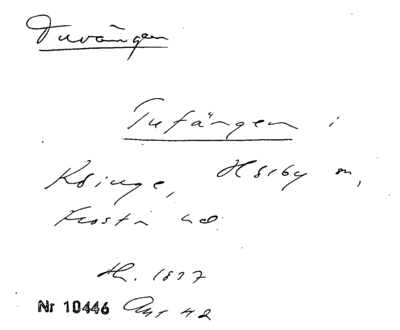 Tuvängen
Tufängen i
Röinge, Hörby sn,
Frosta hd
th. 1837
Nr 10446 Akt 42